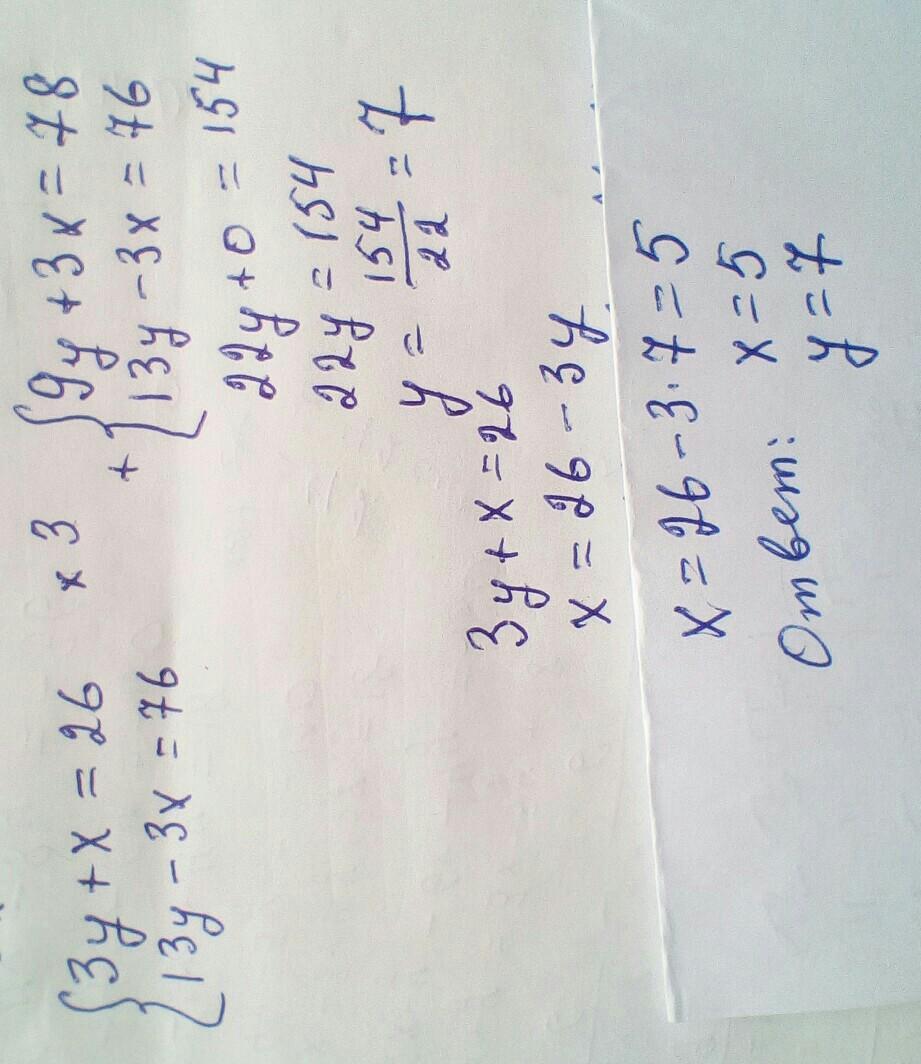 {3y + x = 26   × 3   {9y + 3x = 78
{13y - 3x = 76   + {13y - 3x = 76
22y + 0 = 154
22y = 154
y = 154/22 = 7
3y + x = 26
x = 26 - 3y
x = 26 - 3·7 = 5
Ответ: x = 5
y = 7